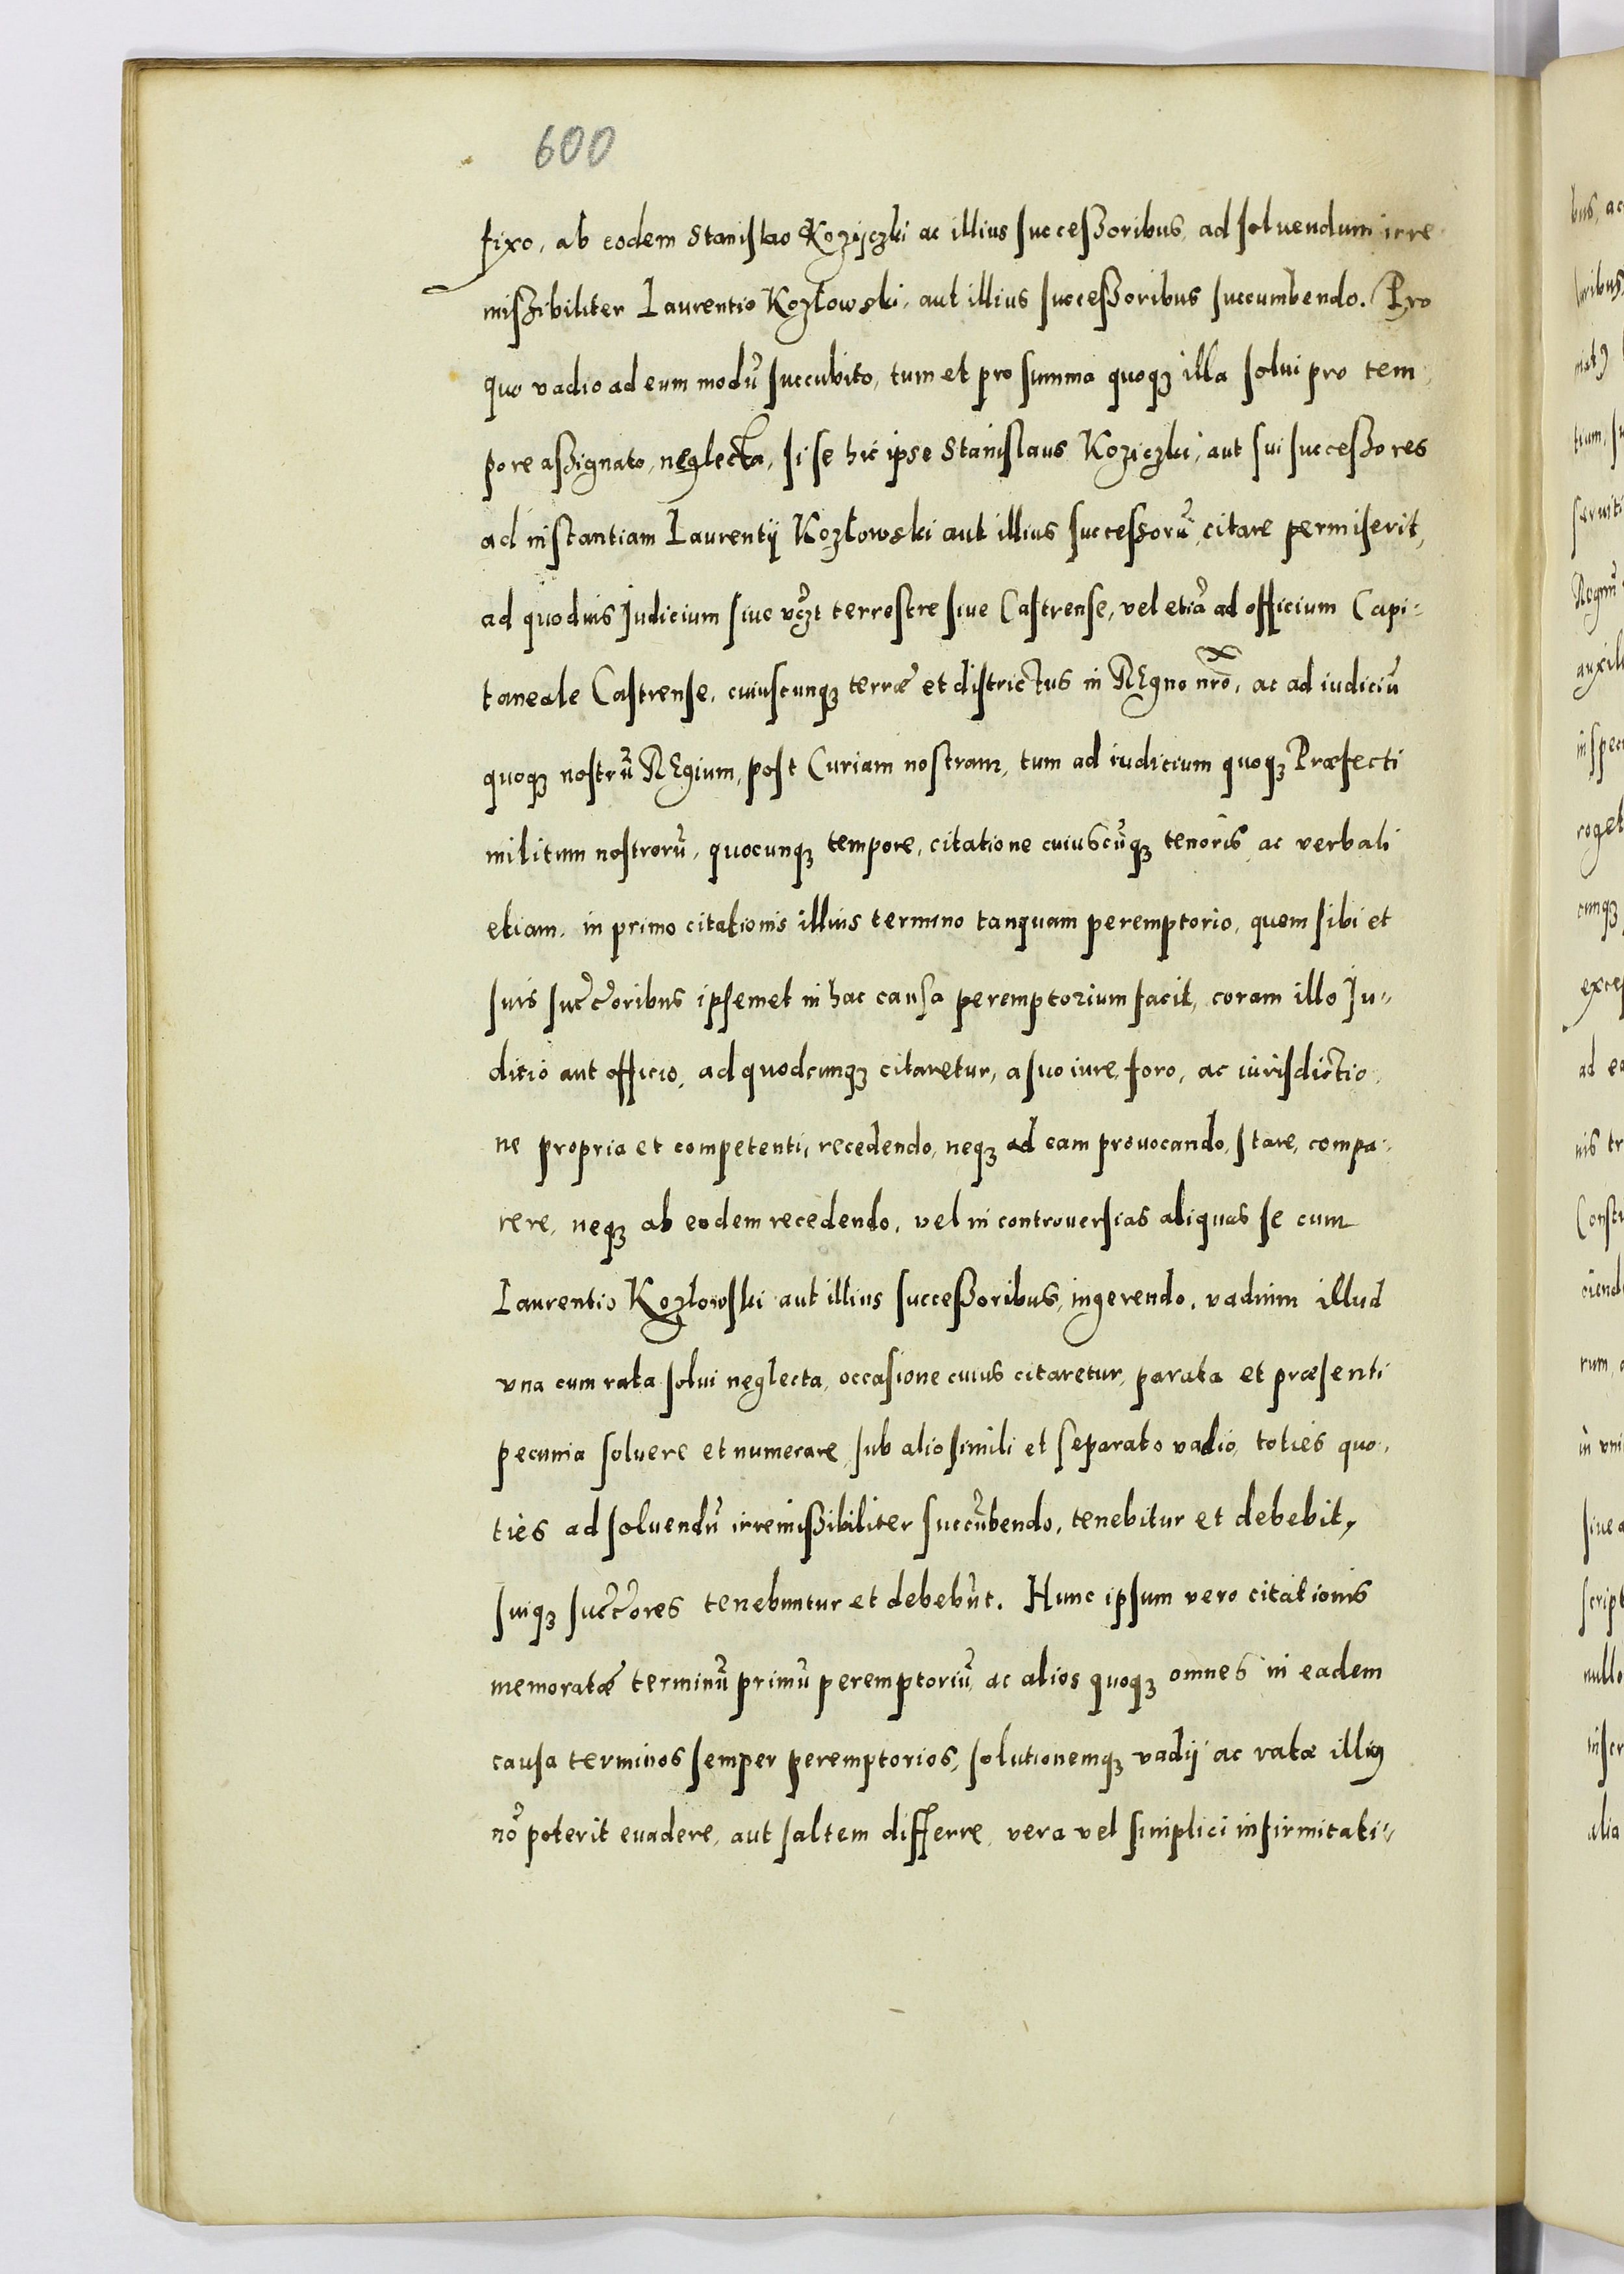 600
fixo, ab eodem Stanislao Kozyczki ac illius successoribus, ad soluendum irre
missibiliter Laurentio Kozłowski, aut illius successoribus succumbendo. Pro
quo vadio ad eum modũ succubito, tum et pro summa quoqȝ illa solui pro tem,
pore assignato, neglecta, si se hic ipse Stanislaus Koziczki, aut sui successores
ad instantiam Laurentij Kozłowski aut illius successorũ, citare permiserit,
ad quoduis Judicium siue vcȝt terrestre siue Castrense, vel etiã ad officium Capi-
taneale Castrense, cuiuscunqȝ terræ et districtus in REgno nr̃o, ac ad iudiciũ
quoqȝ nostrũ REgium, post Curiam nostram, tum ad iudicium quoqȝ Præfecti
militum nostrorũ, quocunqȝ tempore, citatione cuiuscũqȝ tenoris, ac verbali
etiam, in primo citationis illius termino tanquam peremptorio, quem sibi et
suis succ̃oribus ipsemet in hac causa peremptorium facit, coram illo Ju-
ditio aut officio, ad quodcunqȝ citaretur, a suo iure, foro, ac iurisdictio,
ne propria et competenti, recedendo, neqȝ ad eam prouocando, stare, compa-
rere, neqȝ ab eodem recedendo, vel in controuersias aliquas se cum
Laurentio Kozłowski aut illius successoribus, ingerendo, vadium illud
vna cum rata solui neglecta, occasione cuius citaretur, parata et præsenti
pecunia soluere et numerare, sub alio simili et separato vadio, toties quo,
ties ad soluendũ irremissibiliter succũbendo, tenebitur et debebit,
suiqȝ succ̃ores tenebuntur et debebũt. Hunc ipsum vero citationis
memoratæ terminũ primũ peremptoriũ, ac alios quoqȝ omnes in eadem
causa terminos semper peremptorios, solutionemqȝ vadij ac ratæ illiꝰ
nõ poterit euadere, aut saltem differre, vera vel simplici infirmitati-